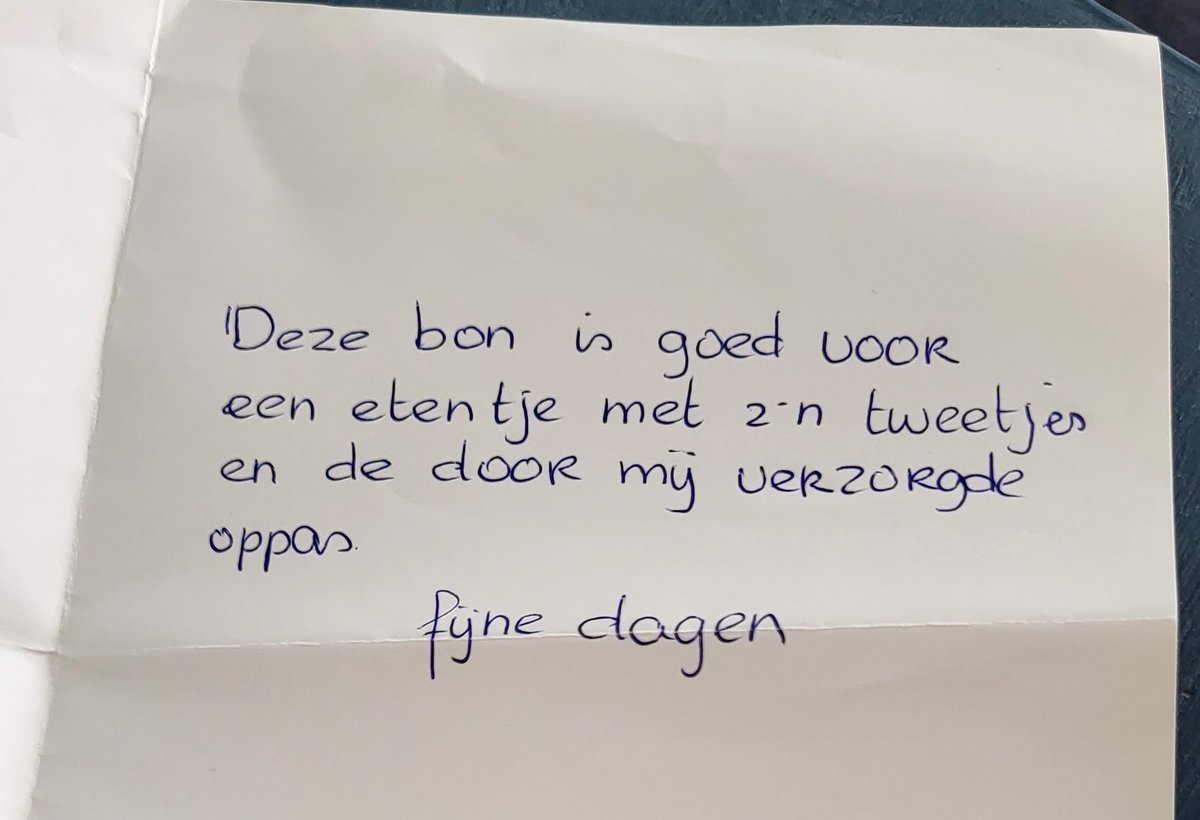 Deze bon is goed voor
een etentje met z'n tweetjes
en de door mij verzorgde
oppas.
fijne dagen